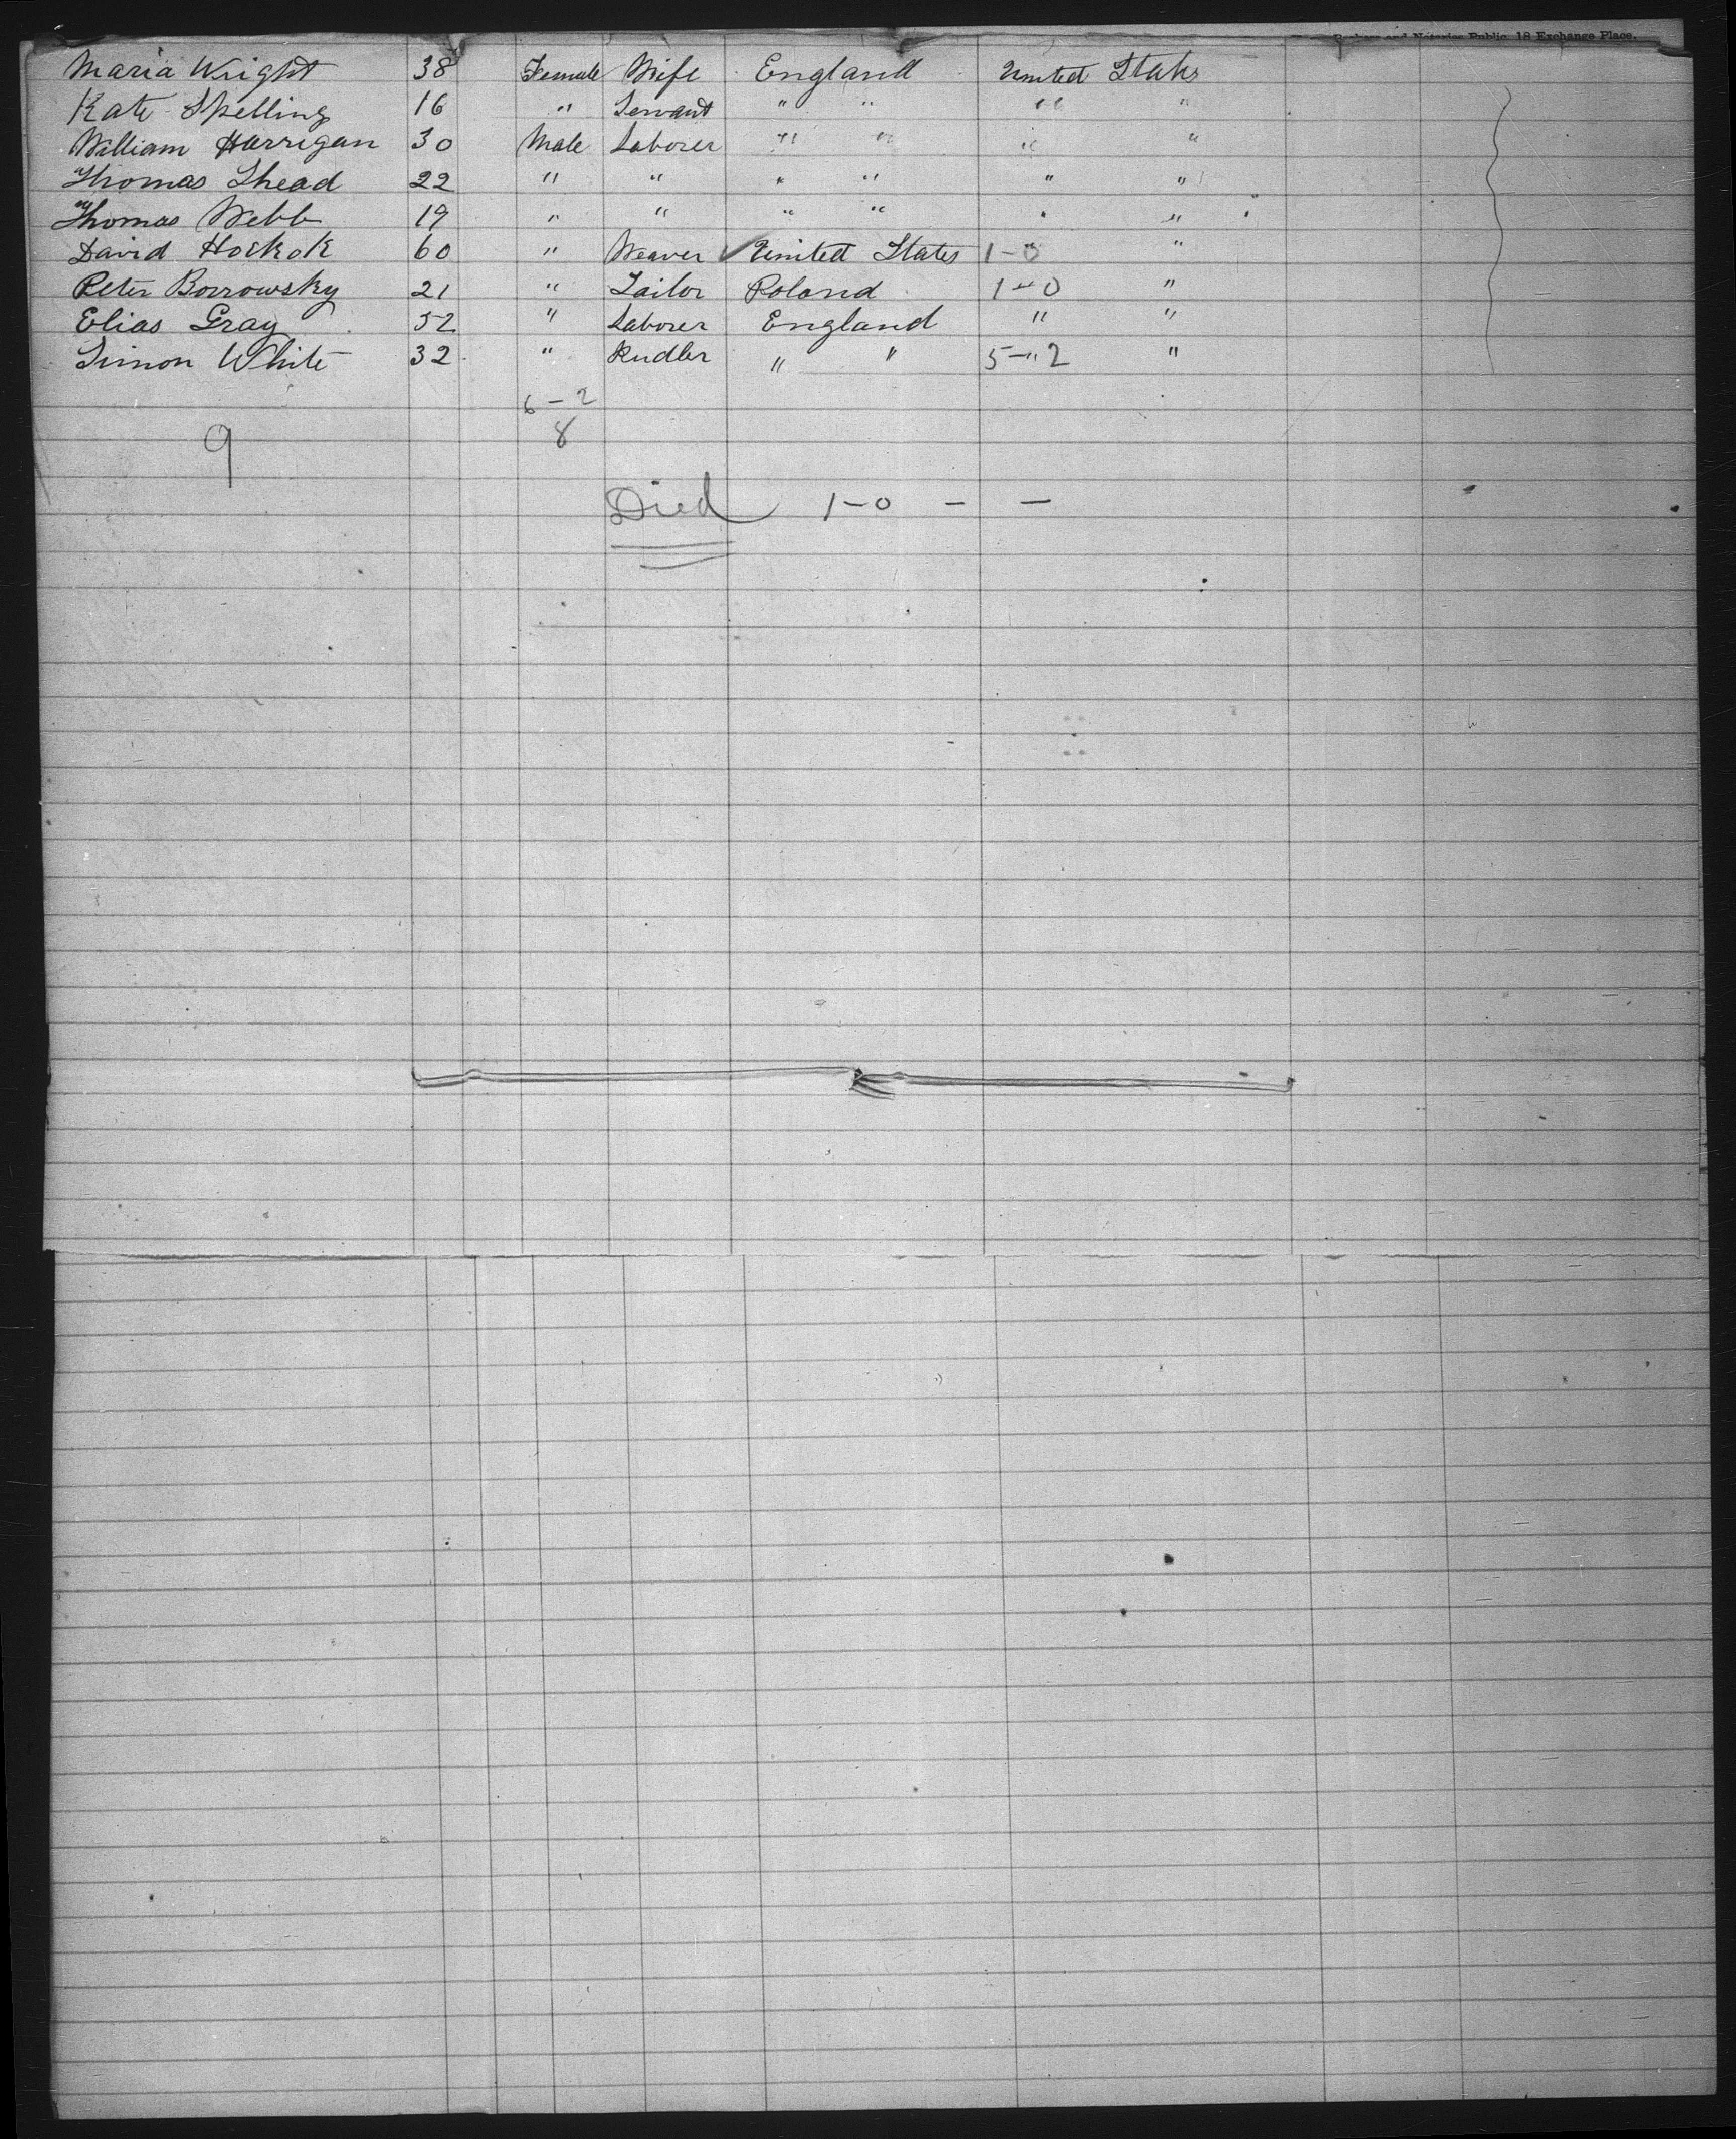 Brokers and Notaries Public, 18 Exchange Place.
Maria Wright 38 Female Wife England United States
Kate Spelling 16 " Servant " " " "
William Harrigan 30 Male Laborer " " " "
Thomas Shead 22 " " " " " "
Thomas Webb 19 " " " " " "
David 60 " Weaver ✓ United States 1-0 "
Peter Borrowsky 21 " Tailor Poland 1-0 "
Elias Gray 52 " Laborer England " "
Simon White 32 " Pudler " " 5-"2 "
6-2
9 8
Died 1-0 - -